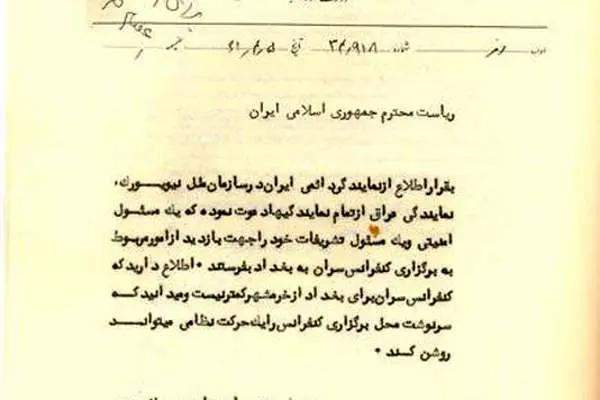 شماره ۳۴۹۱۸ تاریخ ۶۱/۴/۵
ریاست محترم جمهوری اسلامی ایران
بقرار اطلاع از نمایندگی دائمی ایران در سازمان ملل نیویورک،
نمایندگی عراق از تمام نمایندگیها دعوت نموده که یک مسئول
امنیتی و یک مسئول تشریفات خود را جهت بازدید از امور مربوط
به برگزاری کنفرانس سران به بغداد بفرستند . اطلاع دارید که
کنفرانس سران برای بغداد از خرمشهر کمتر نیست و میدانید که
سرنوشت محل برگزاری کنفرانس را یک حرکت نظامی میتواند
روشن کند .